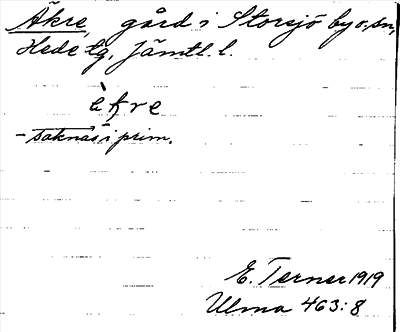 Åkre, gård i Storsjö by o. sn,
Hede tg, Jämtl. l.
èkre
- saknas i prim.
E. Terner 1919
Ulma 463:8